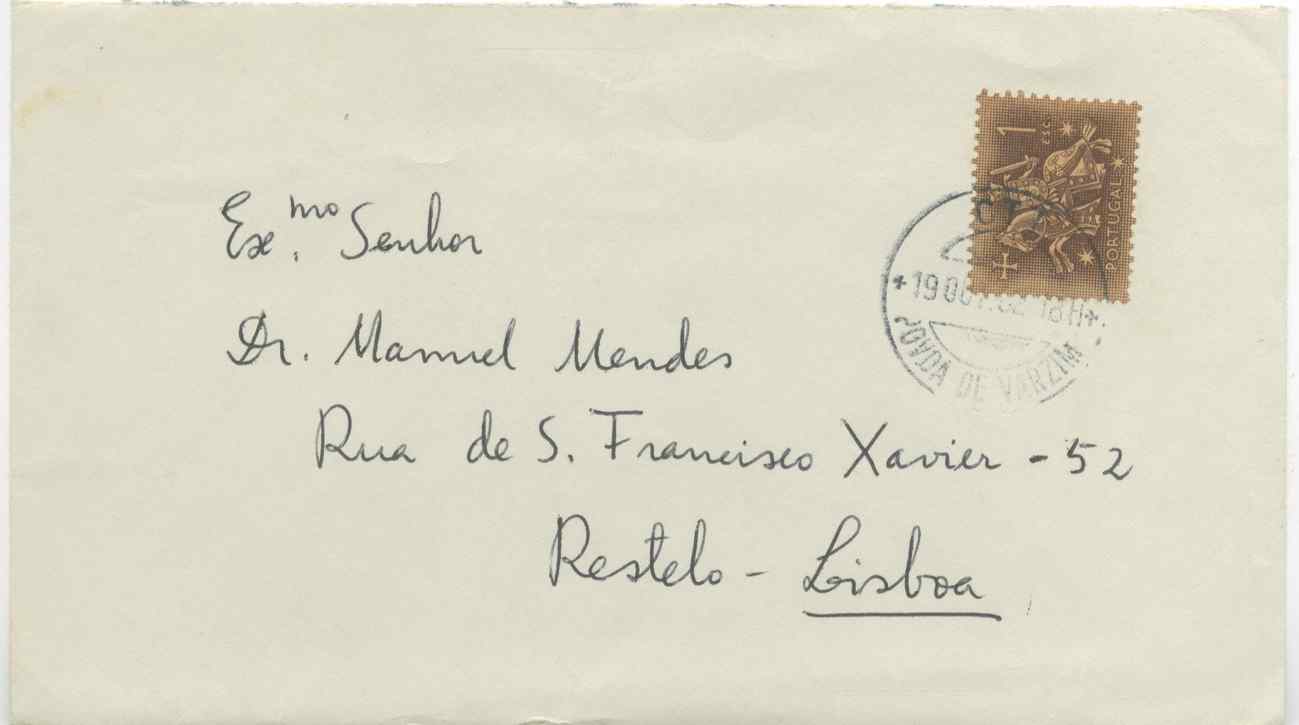 1 ESC.
PORTUGAL
CT
+19 OUT. 62 18H+
POVOA DE VARZIM
Ex.mo Senhor
Dr. Manuel Mendes
Rua de S. Francisco Xavier - 52
Restelo - Lisboa